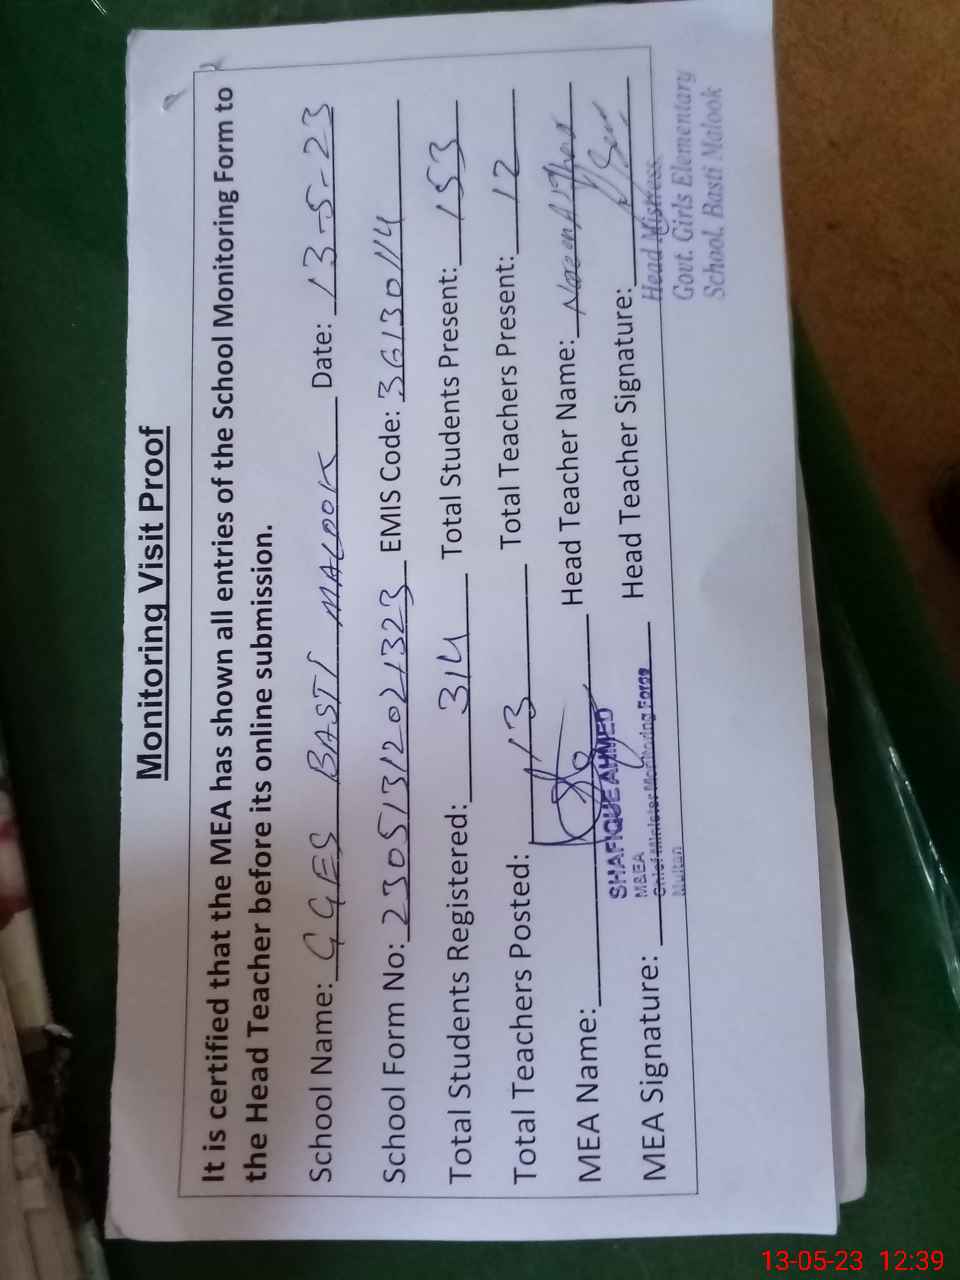 Monitoring Visit Proof
It is certified that the MEA has shown all entries of the School Monitoring Form to
the Head Teacher before its online submission.
School Name: GGES BASTI MALOOK Date: 13-5-23
School Form No: 23051312021323 EMIS Code: 36130114
Total Students Registered: 314 Total Students Present: 153
Total Teachers Posted: 13 Total Teachers Present: 12
MEA Name: Head Teacher Name:
SHAFIQUE AHMED
M&EA
Chief Minister Monitoring Force
Multan
MEA Signature: Head Teacher Signature:
Head Mistress
Govt. Girls Elementary
School, Basti Malook
13-05-23 12:39